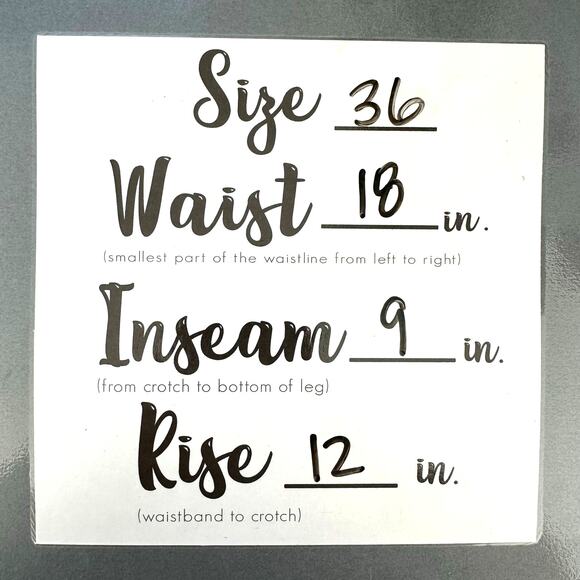 Size 36
Waist 18 in.
(smallest part of the waistline from left to right)
Inseam 9 in.
(from crotch to bottom of leg)
Rise 12 in.
(waistband to crotch)